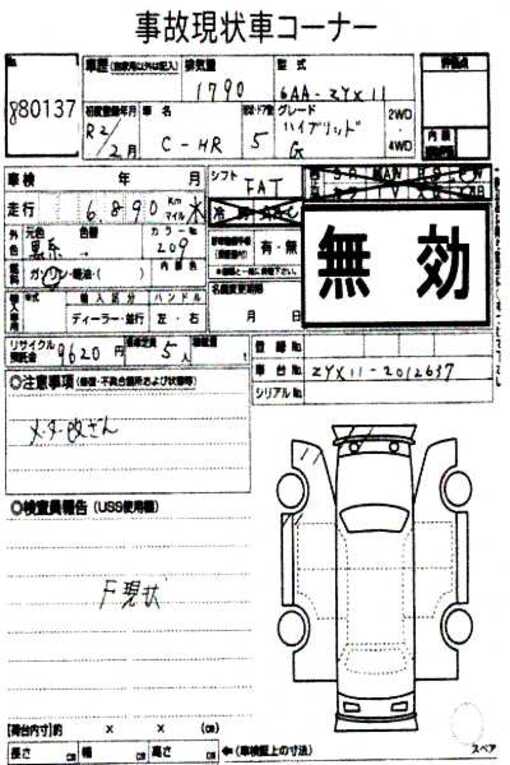 事故現状車コーナー
No.
880137
車歴 排気量 型式
1790 6AA-ZYX11
初度登録年月 車名 型状・ドア数 グレード
R2/2月 C-HR 5 ハイブリッド G
2WD
・
4WD
評価点
内装
車検 年 月
シフト FAT
走行 6,890 Km マイル
外色 元色 色替 カラーNo.
黒系 209
有・無
燃料 ガソリン・軽油・( ) 内装色
無効
名義変更期限
月 日
輸入車用 年式 輸入区分 ハンドル
ディーラー・並行 左・右
リサイクル預託金 9620円 乗車定員 5人 積載量 t
登録No.
車台No. ZYX11-2012637
シリアルNo.
◎注意事項(修復・不具合箇所および状態等)
メーター改ざん
◎検査員報告(USS使用欄)
F現状
[荷台内寸]約 × × (cm)
長さ cm 幅 cm 高さ cm
←(車検証上の寸法)
スペア